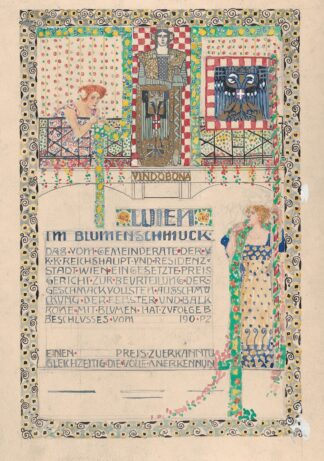 VINDOBONA
WIEN
IM BLUMENSCHMUCK
DAS · VOM · GEMEINDERATE · DER ·
K · K · REICHSHAUPT · UND RESIDENZ ·
STADT · WIEN · EINGESETZTE · PREIS
GERICHT · ZUR · BEURTEILUNG · DER ·
GESCHMACKVOLLSTEN · AUSSCHMÜ
CKUNG · DER · FENSTER · UND BALK
KONE · MIT · BLUMEN · HAT · ZUFOLGE
BESCHLUSSES · VOM 190
EINEN PREIS · ZUERKANNT
GLEICHZEITIG · DIE · VOLLE · ANERKENNUN